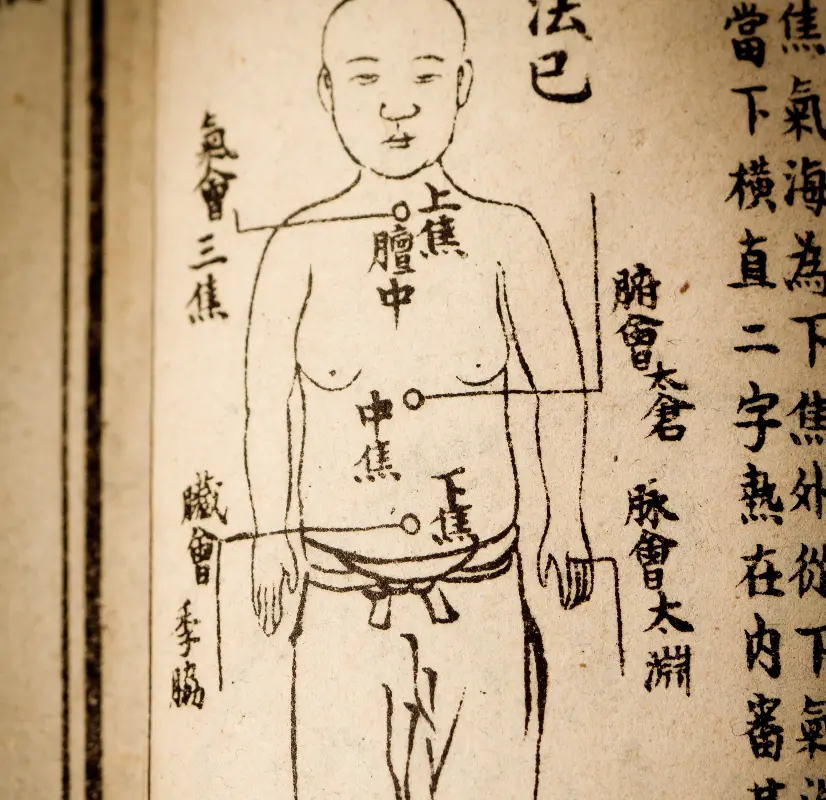 焦氣海為下焦外從下氣
當下橫直二字熱在内審其
法已
腑會太倉
脉會太淵
上焦
膻中
中焦
下焦
氣會三焦
臟會季脇